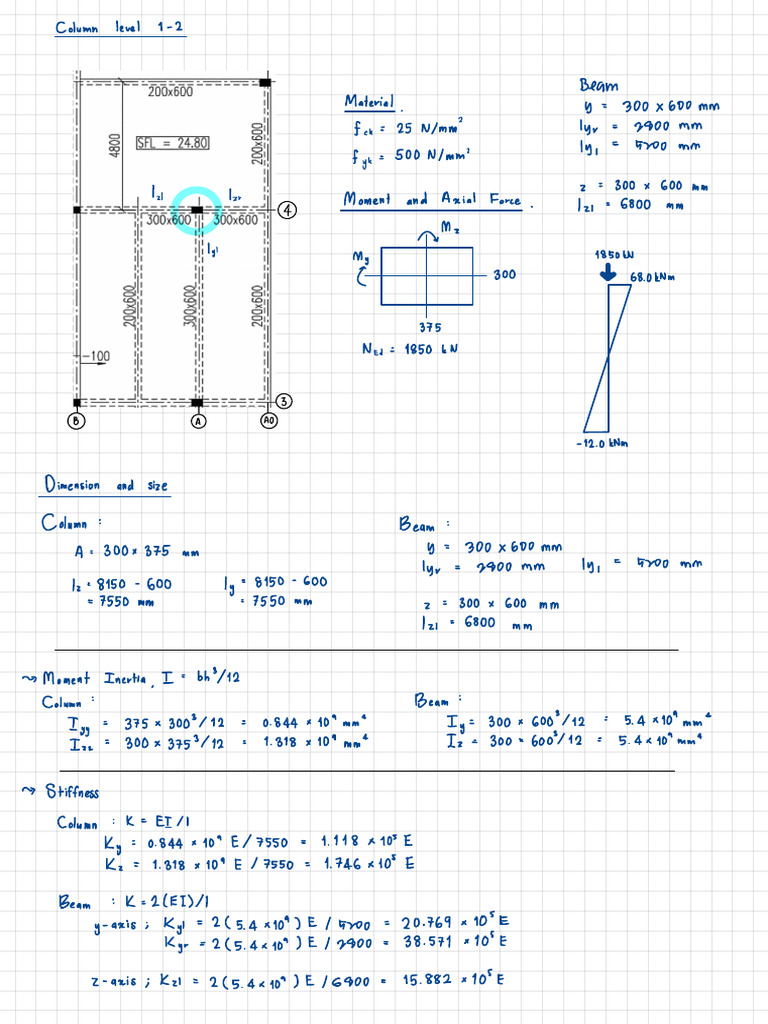 Column level 1-2
200x600
4800
SFL = 24.80
200x600
lzl
lzr
4
300x600
300x600
lyl
200x600
300x600
200x600
-100
3
B
A
A0
Material.
fck = 25 N/mm²
fyk = 500 N/mm²
Moment and Axial Force.
Mz
My
300
375
NEd = 1850 kN
Beam
y = 300 x 600 mm
lyr = 2800 mm
lyl = 5200 mm
z = 300 x 600 mm
lzl = 6800 mm
1850 kN
68.0 kNm
-12.0 kNm
Dimension and size
Column :
A = 300 x 375 mm
lz = 8150 - 600
= 7550 mm
ly = 8150 - 600
= 7550 mm
Beam :
y = 300 x 600 mm
lyr = 2800 mm lyl = 5200 mm
z = 300 x 600 mm
lzl = 6800 mm
~> Moment Inertia, I = bh³/12
Column :
Iyy = 375 x 300³/12 = 0.844 x 10⁹ mm⁴
Izz = 300 x 375³/12 = 1.318 x 10⁹ mm⁴
Beam :
Iy = 300 x 600³/12 = 5.4 x 10⁹ mm⁴
Iz = 300 x 600³/12 = 5.4 x 10⁹ mm⁴
~> Stiffness
Column : K = EI/l
Ky = 0.844 x 10⁹ E/7550 = 1.118 x 10⁵ E
Kz = 1.318 x 10⁹ E/7550 = 1.746 x 10⁵ E
Beam : K = 2(EI)/l
y-axis ; Kyl = 2(5.4 x 10⁹)E/5200 = 20.769 x 10⁵ E
Kyr = 2(5.4 x 10⁹)E/2800 = 38.571 x 10⁵ E
z-axis ; Kzl = 2(5.4 x 10⁹)E/6800 = 15.882 x 10⁵ E